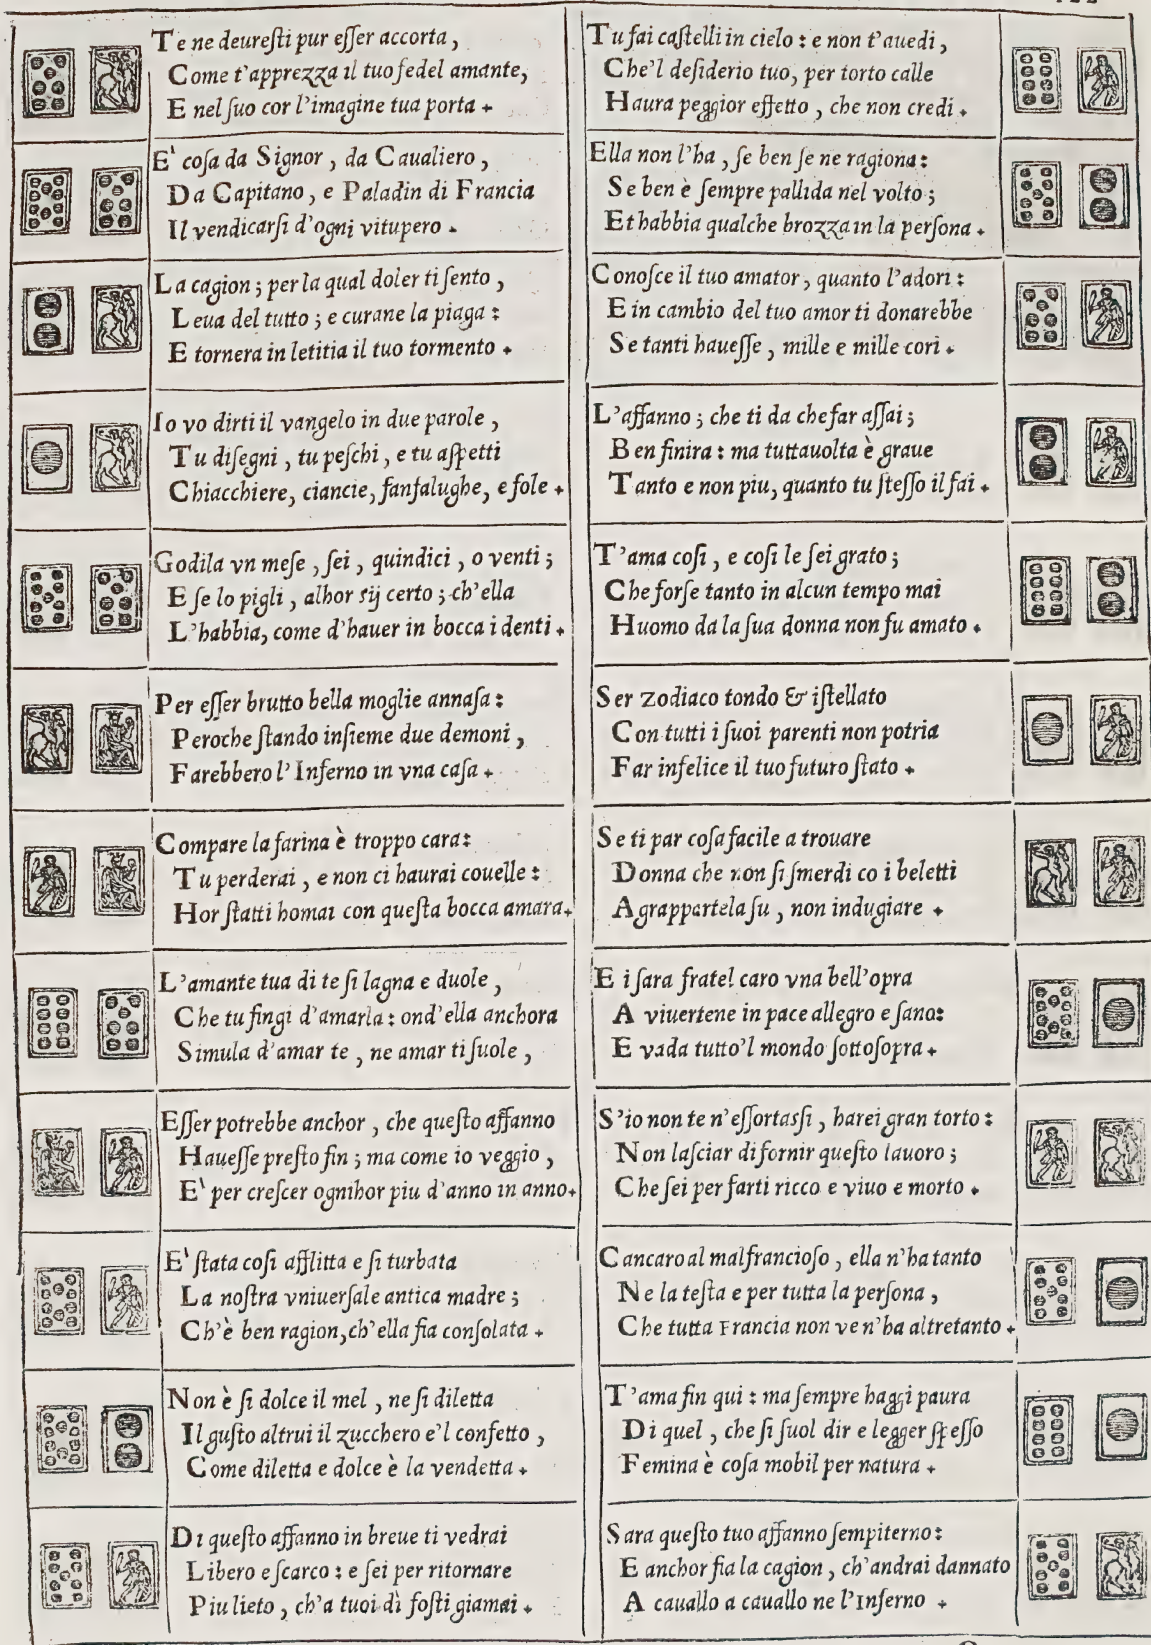 Te ne deureſti pur eſſer accorta ,
Come t'apprezza il tuo fedel amante,
E nel ſuo cor l'imagine tua porta .
E' coſa da Signor , da Caualiero ,
Da Capitano , e Paladin di Francia
Il vendicarſi d'ogni vitupero .
La cagion ; per la qual doler ti ſento ,
Leua del tutto ; e curane la piaga :
E tornera in letitia il tuo tormento .
Io vo dirti il vangelo in due parole ,
Tu diſegni , tu peſchi , e tu aſpetti
Chiacchiere, ciancie, fanfalughe, e fole .
Godila vn meſe , ſei , quindici , o venti ;
E ſe lo pigli , alhor sij certo ; ch'ella
L'habbia, come d'hauer in bocca i denti .
Per eſſer brutto bella moglie annaſa :
Peroche ſtando inſieme due demoni ,
Farebbero l'Inferno in vna caſa .
Compare la farina è troppo cara :
Tu perderai , e non ci haurai couelle :
Hor ſtatti homai con queſta bocca amara .
L'amante tua di te ſi lagna e duole ,
Che tu fingi d'amarla : ond'ella anchora
Simula d'amar te , ne amar ti ſuole ,
Eſſer potrebbe anchor , che queſto affanno
Haueſſe preſto fin ; ma come io veggio ,
E' per creſcer ognihor piu d'anno in anno .
E' ſtata coſi afflitta e ſi turbata
La noſtra vniuerſale antica madre ;
Ch'è ben ragion, ch'ella ſia conſolata .
Non è ſi dolce il mel , ne ſi diletta
Il guſto altrui il zucchero e'l confetto ,
Come diletta e dolce è la vendetta .
Di queſto affanno in breue ti vedrai
Libero e ſcarco : e ſei per ritornare
Piu lieto , ch'a tuoi dì foſti giamai .
Tu fai caſtelli in cielo : e non t'auedi ,
Che'l deſiderio tuo, per torto calle
Haura peggior effetto , che non credi .
Ella non l'ha , ſe ben ſe ne ragiona :
Se ben è ſempre pallida nel volto ;
Et habbia qualche brozza in la perſona .
Conoſce il tuo amator , quanto l'adori :
E in cambio del tuo amor ti donarebbe
Se tanti haueſſe , mille e mille cori .
L'affanno ; che ti da che far aſſai ;
Ben finira : ma tuttauolta è graue
Tanto e non piu, quanto tu ſteſſo il fai .
T'ama coſi , e coſi le ſei grato ;
Che forſe tanto in alcun tempo mai
Huomo da la ſua donna non fu amato .
Ser Zodiaco tondo & iſtellato
Con tutti i ſuoi parenti non potria
Far infelice il tuo futuro ſtato .
Se ti par coſa facile a trouare
Donna che non ſi ſmerdi co i beletti
Agrappartela ſu , non indugiare .
E i ſara fratel caro vna bell'opra
A viuertene in pace allegro e ſano:
E vada tutto'l mondo ſottoſopra .
S'io non te n'eſſortaſſi , harei gran torto :
Non laſciar di fornir queſto lauoro ;
Che ſei per farti ricco e viuo e morto .
Cancaro al malfrancioſo , ella n'ha tanto
Ne la teſta e per tutta la perſona ,
Che tutta Francia non ve n'ha altretanto .
T'ama fin qui : ma ſempre haggi paura
Di quel , che ſi ſuol dir e legger ſpeſſo
Femina è coſa mobil per natura .
Sara queſto tuo affanno ſempiterno :
E anchor fia la cagion , ch'andrai dannato
A cauallo a cauallo ne l'Inferno .